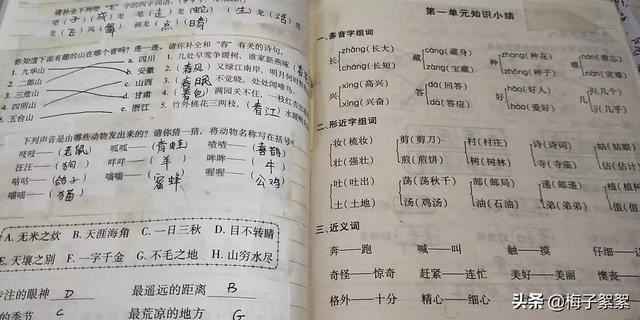 请补全下列带"龙"字的四字词语。
望(子)(成)龙 笔(走)龙(蛇) (生)龙(活)虎
画龙(点)(睛)
你知道下面有趣的山在哪个省吗?连一连。
1. 九华山 a. 四川
2. 二郎山 b. 安徽
3. 三危山 c. 山西
4. 四明山 d. 甘肃
5. 五台山 e. 浙江
请你补全和"春"有关的诗句。
1. 几处早莺争暖树,谁家新燕啄
2. (春风)又绿江南岸,明月何时照
3. (春眠)不觉晓,处处闻啼鸟。
4. (春色)满园关不住,一枝红杏出
5. 竹外桃花三两枝,(春江)水暖鸭
下列声音是由哪些动物发出来的?请你猜一猜,将动物名称写在括号
吱吱——(老鼠) 呱呱——(青蛙) 喳喳——(喜鹊)
汪汪——(狗) 咩咩——(羊) 哞哞——(牛)
咕咕——(鸽子) 嗡嗡——(蜜蜂) 喔喔——(公鸡)
喵喵——(猫)
A. 无米之炊 B. 天涯海角 C. 一日三秋 D. 目不转睛
E. 天壤之别 F. 一字千金 G. 不毛之地 H. 山穷水尽
专注的眼神 D 最遥远的距离 B
的季节 C 最荒凉的地方 G
第一单元知识小结
一、多音字组词
长 zhǎng(长大) cháng(长短)
藏 cáng(藏身) zàng(宝藏)
种 zhòng(种花) zhǒng(种子)
难 nán(难忘) nàn(灾难)
兴 xìng(高兴) xīng(兴奋)
答 dá(回答) dā(答应)
好 hǎo(好处) hào(爱好)
几 jǐ(几个) jī(几乎)
二、形近字组词
妆(梳妆) 剪(剪刀) 村(村庄) 诗(诗词) 姑(姑娘)
壮(强壮) 煎(煎饼) 树(树林) 寺(寺庙) 估(估计)
吐(吐出) 荡(荡秋千) 邮(邮局) 递(邮递) 植(植树)
土(土地) 汤(鸡汤) 油(石油) 弟(弟弟) 值(值
三、近义词
奔——跑 喊——叫 触——摸 仔细——
奇怪——惊奇 赶紧——连忙 美好——美丽 懊丧——
格外——十分 精心——细心
头条 @梅子絮絮